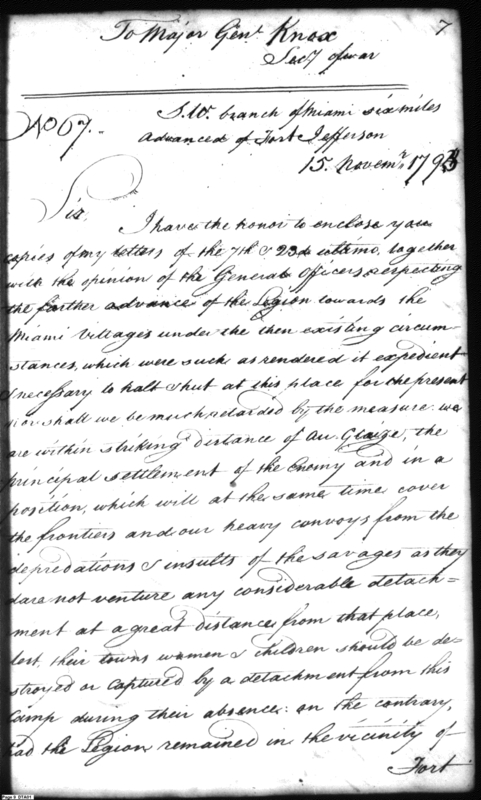 To Major Genl. Knox
7
Secy of war
No 67.
S.W. branch of Miami six miles
advanced of Fort Jefferson
15. Novemr. 1793
Sir,
I have the honor to enclose you
copies of my letters of the 7th & 23d ultimo, together
with the opinion of the General Officers respecting
the further advance of the Legion towards the
Miami Villages under the then existing circum-
stances, which were such as rendered it expedient
& necessary to halt & hut at this place for the present
nor shall we be much retarded by the measure. we
are within striking distance of Au Glaize, the
principal settlement of the Enemy and in a
position, which will at the same time cover
the frontiers and our heavy convoys from the
depredations & insults of the savages as they
dare not venture any considerable detach=
ment at a great distance from that place,
lest, their towns women & children should be de-
stroyed or captured by a detachment from this
Camp during their absence: on the contrary,
had the Legion remained in the vicinity of
Fort